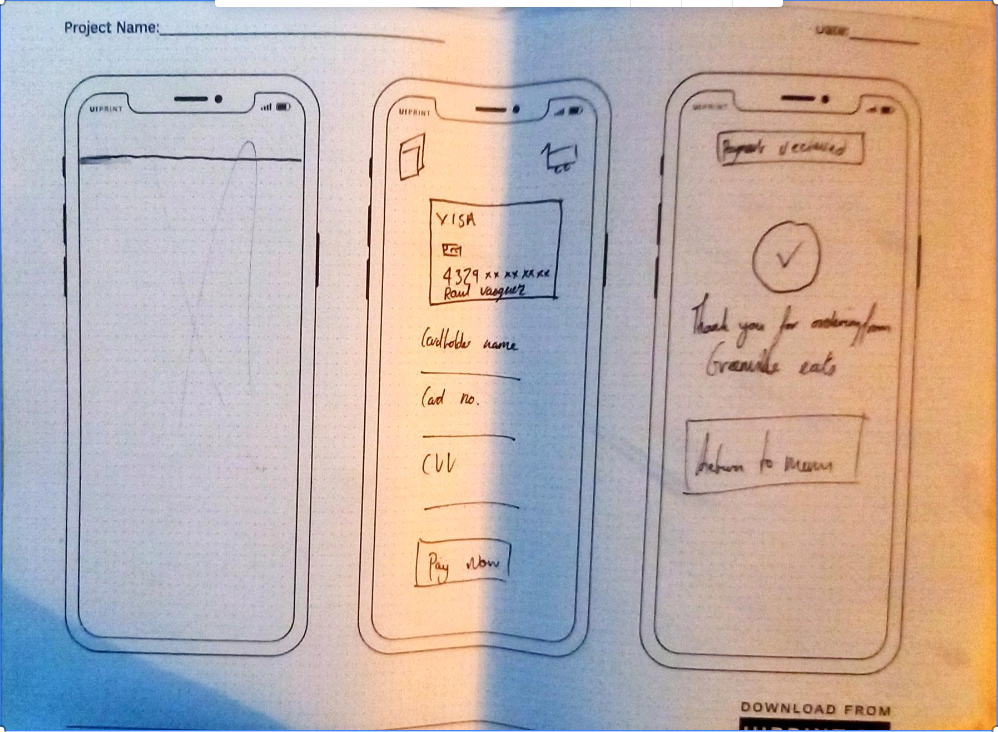 Project Name:
Date:
UIPRINT
UIPRINT
VISA
4329 xx xx xx xx
Raul Vasquez
Cardholder name
Card no.
CVV
Pay Now
UIPRINT
Payment recieved
Thank you for ordering from
Greenville eats
Return to menu
DOWNLOAD FROM
UIPRINT